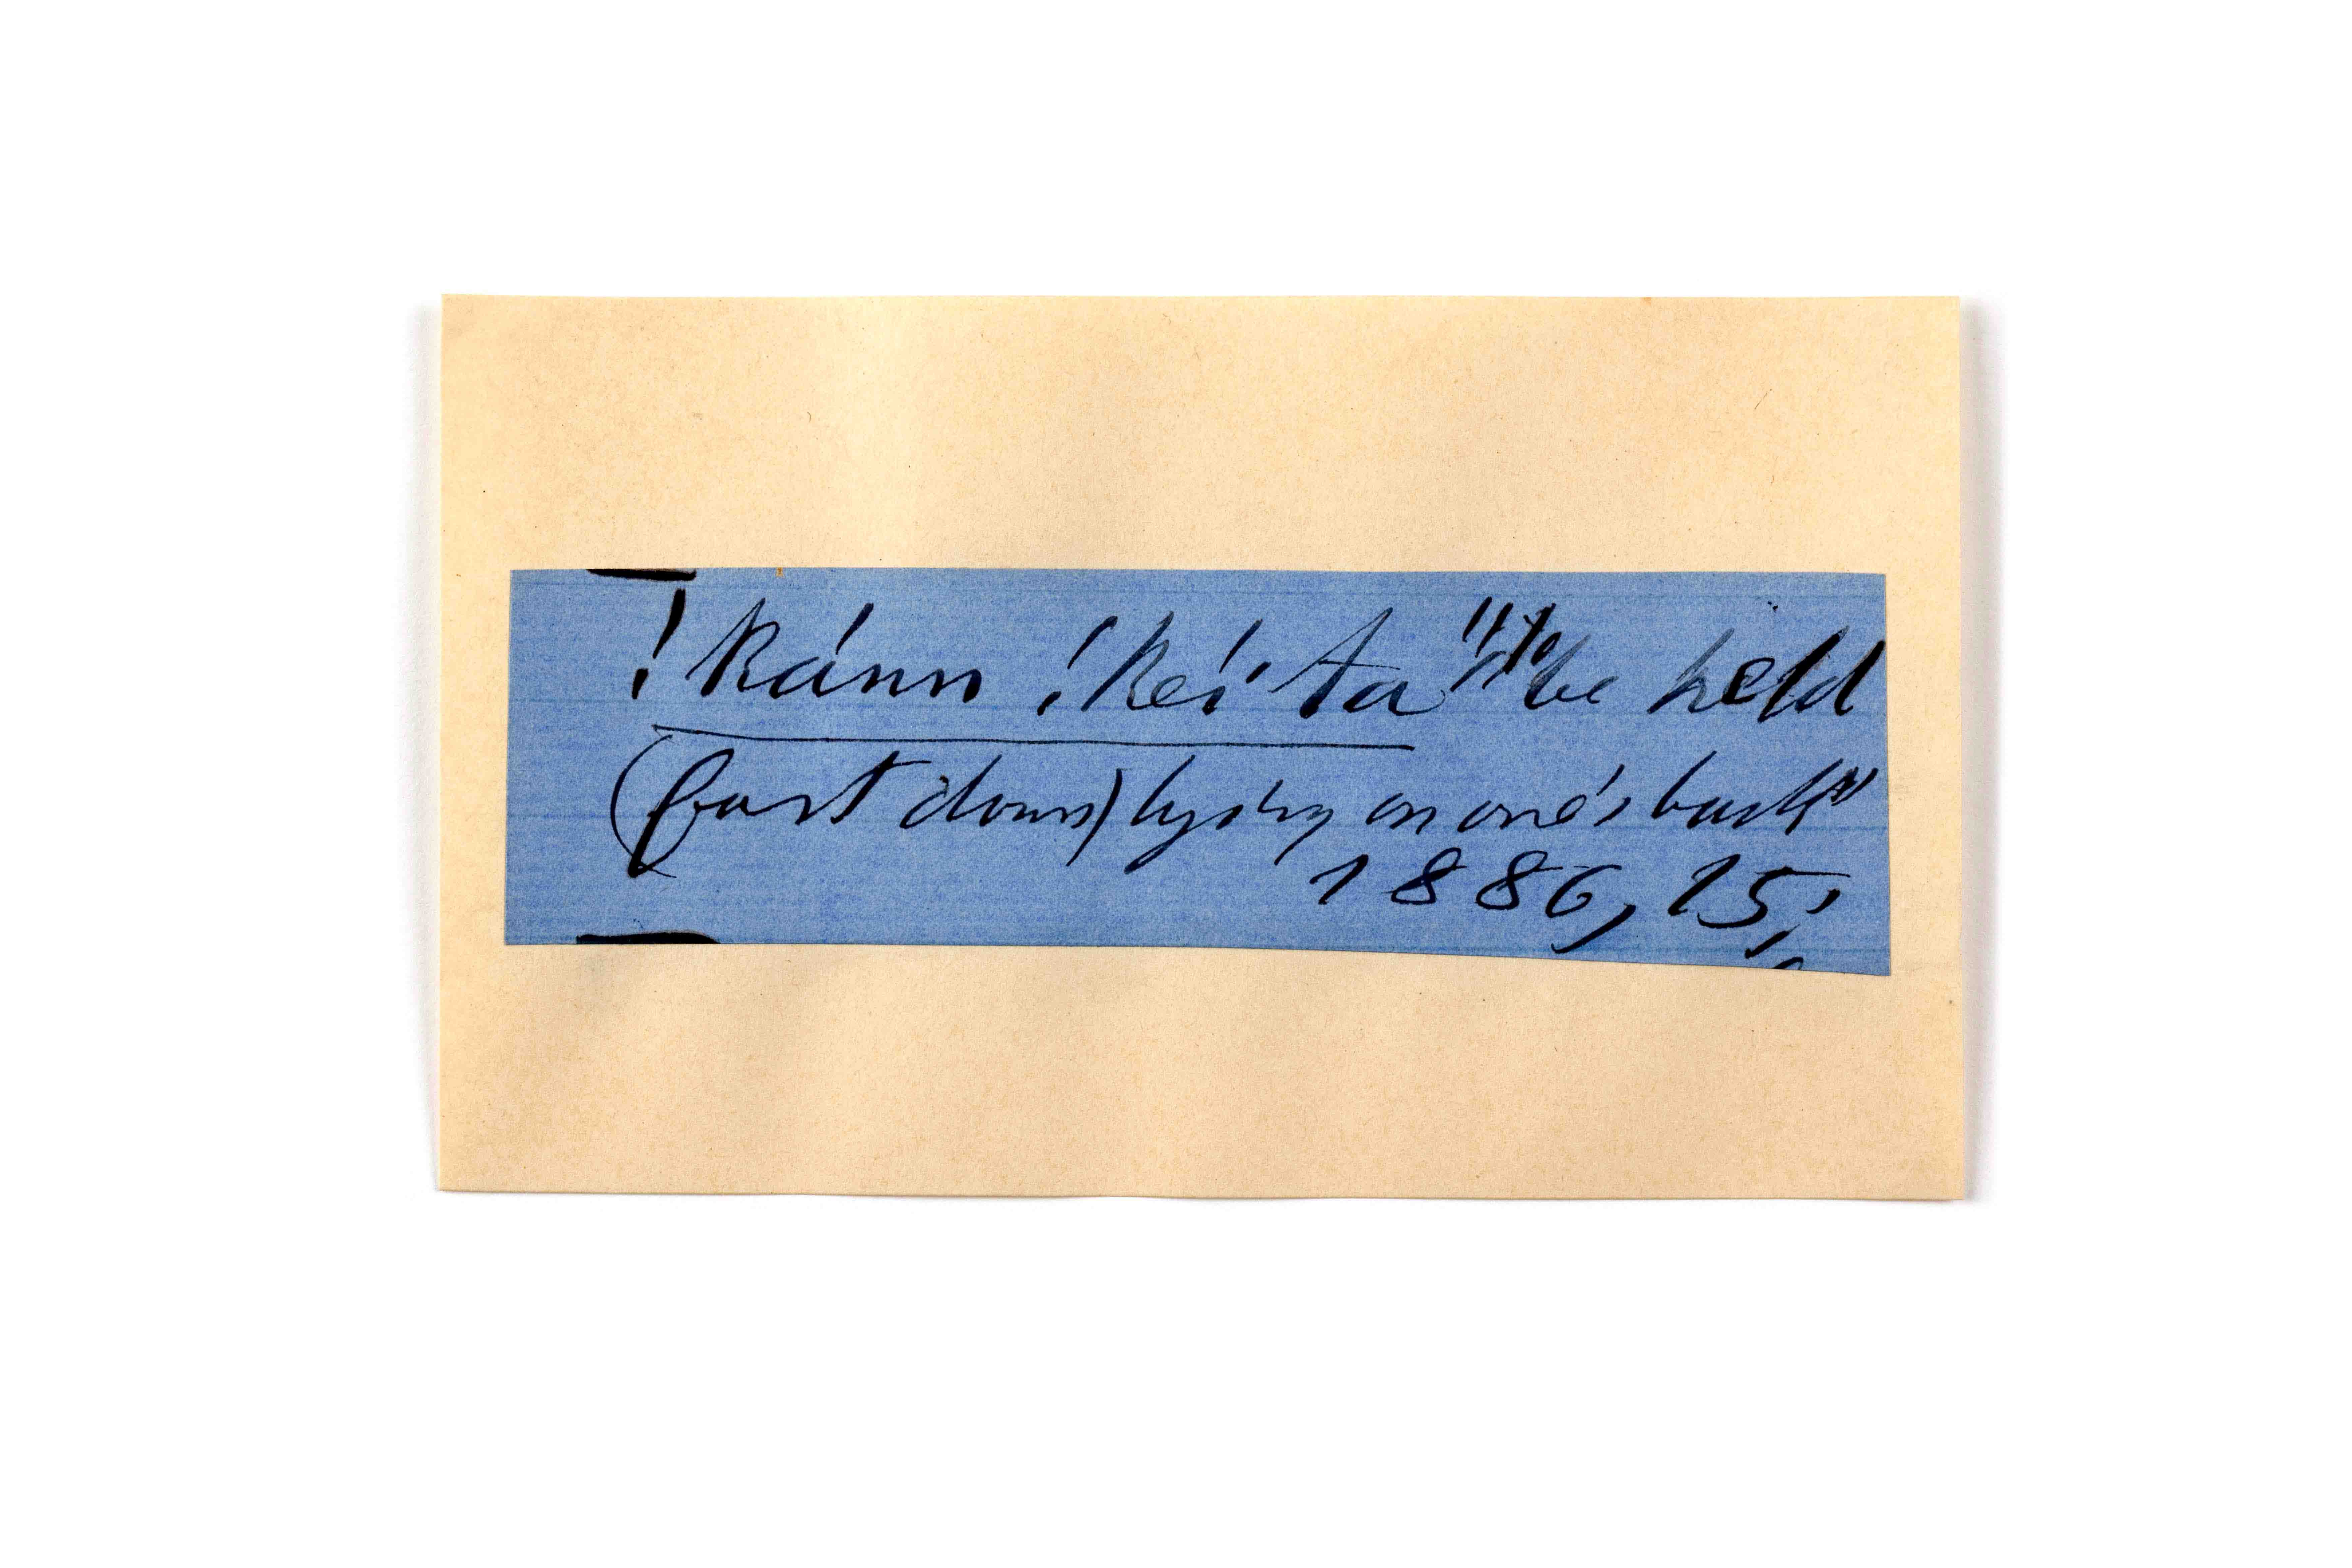 !kánn !keí ta "to be held
(fast down) lying on one's back"
1886, 15;